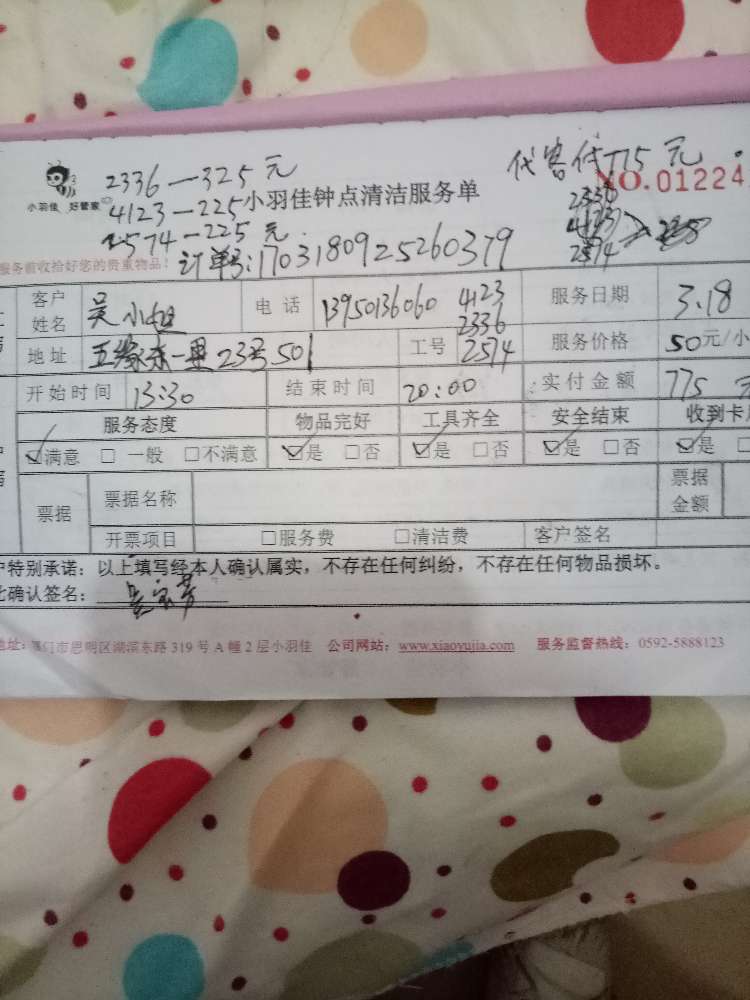 2336—325元
代客付775元
小羽佳 好管家
4123—225
小羽佳钟点清洁服务单
NO.01224
2574—225元
2336
4123
2574
服务前收拾好您的贵重物品！
订单号:1703180925260379
客户姓名 吴小姐 电话 13950136060 4123 服务日期 3.18
2336
地址 五缘东一里23号501 工号 2574 服务价格 50元/小
开始时间 13:30 结束时间 20:00 实付金额 775元
服务态度 物品完好 工具齐全 安全结束 收到卡
☑满意 □一般 □不满意 ☑是 □否 ☑是 □否 ☑是 □否 ☑是 □
票据 票据名称 票据金额
开票项目 □服务费 □清洁费 客户签名
户特别承诺：以上填写经本人确认属实，不存在任何纠纷，不存在任何物品损坏。
此确认签名：
地址：厦门市思明区湖滨东路319号A幢2层小羽佳 公司网站：www.xiaoyujia.com 服务监督热线：0592-5888123